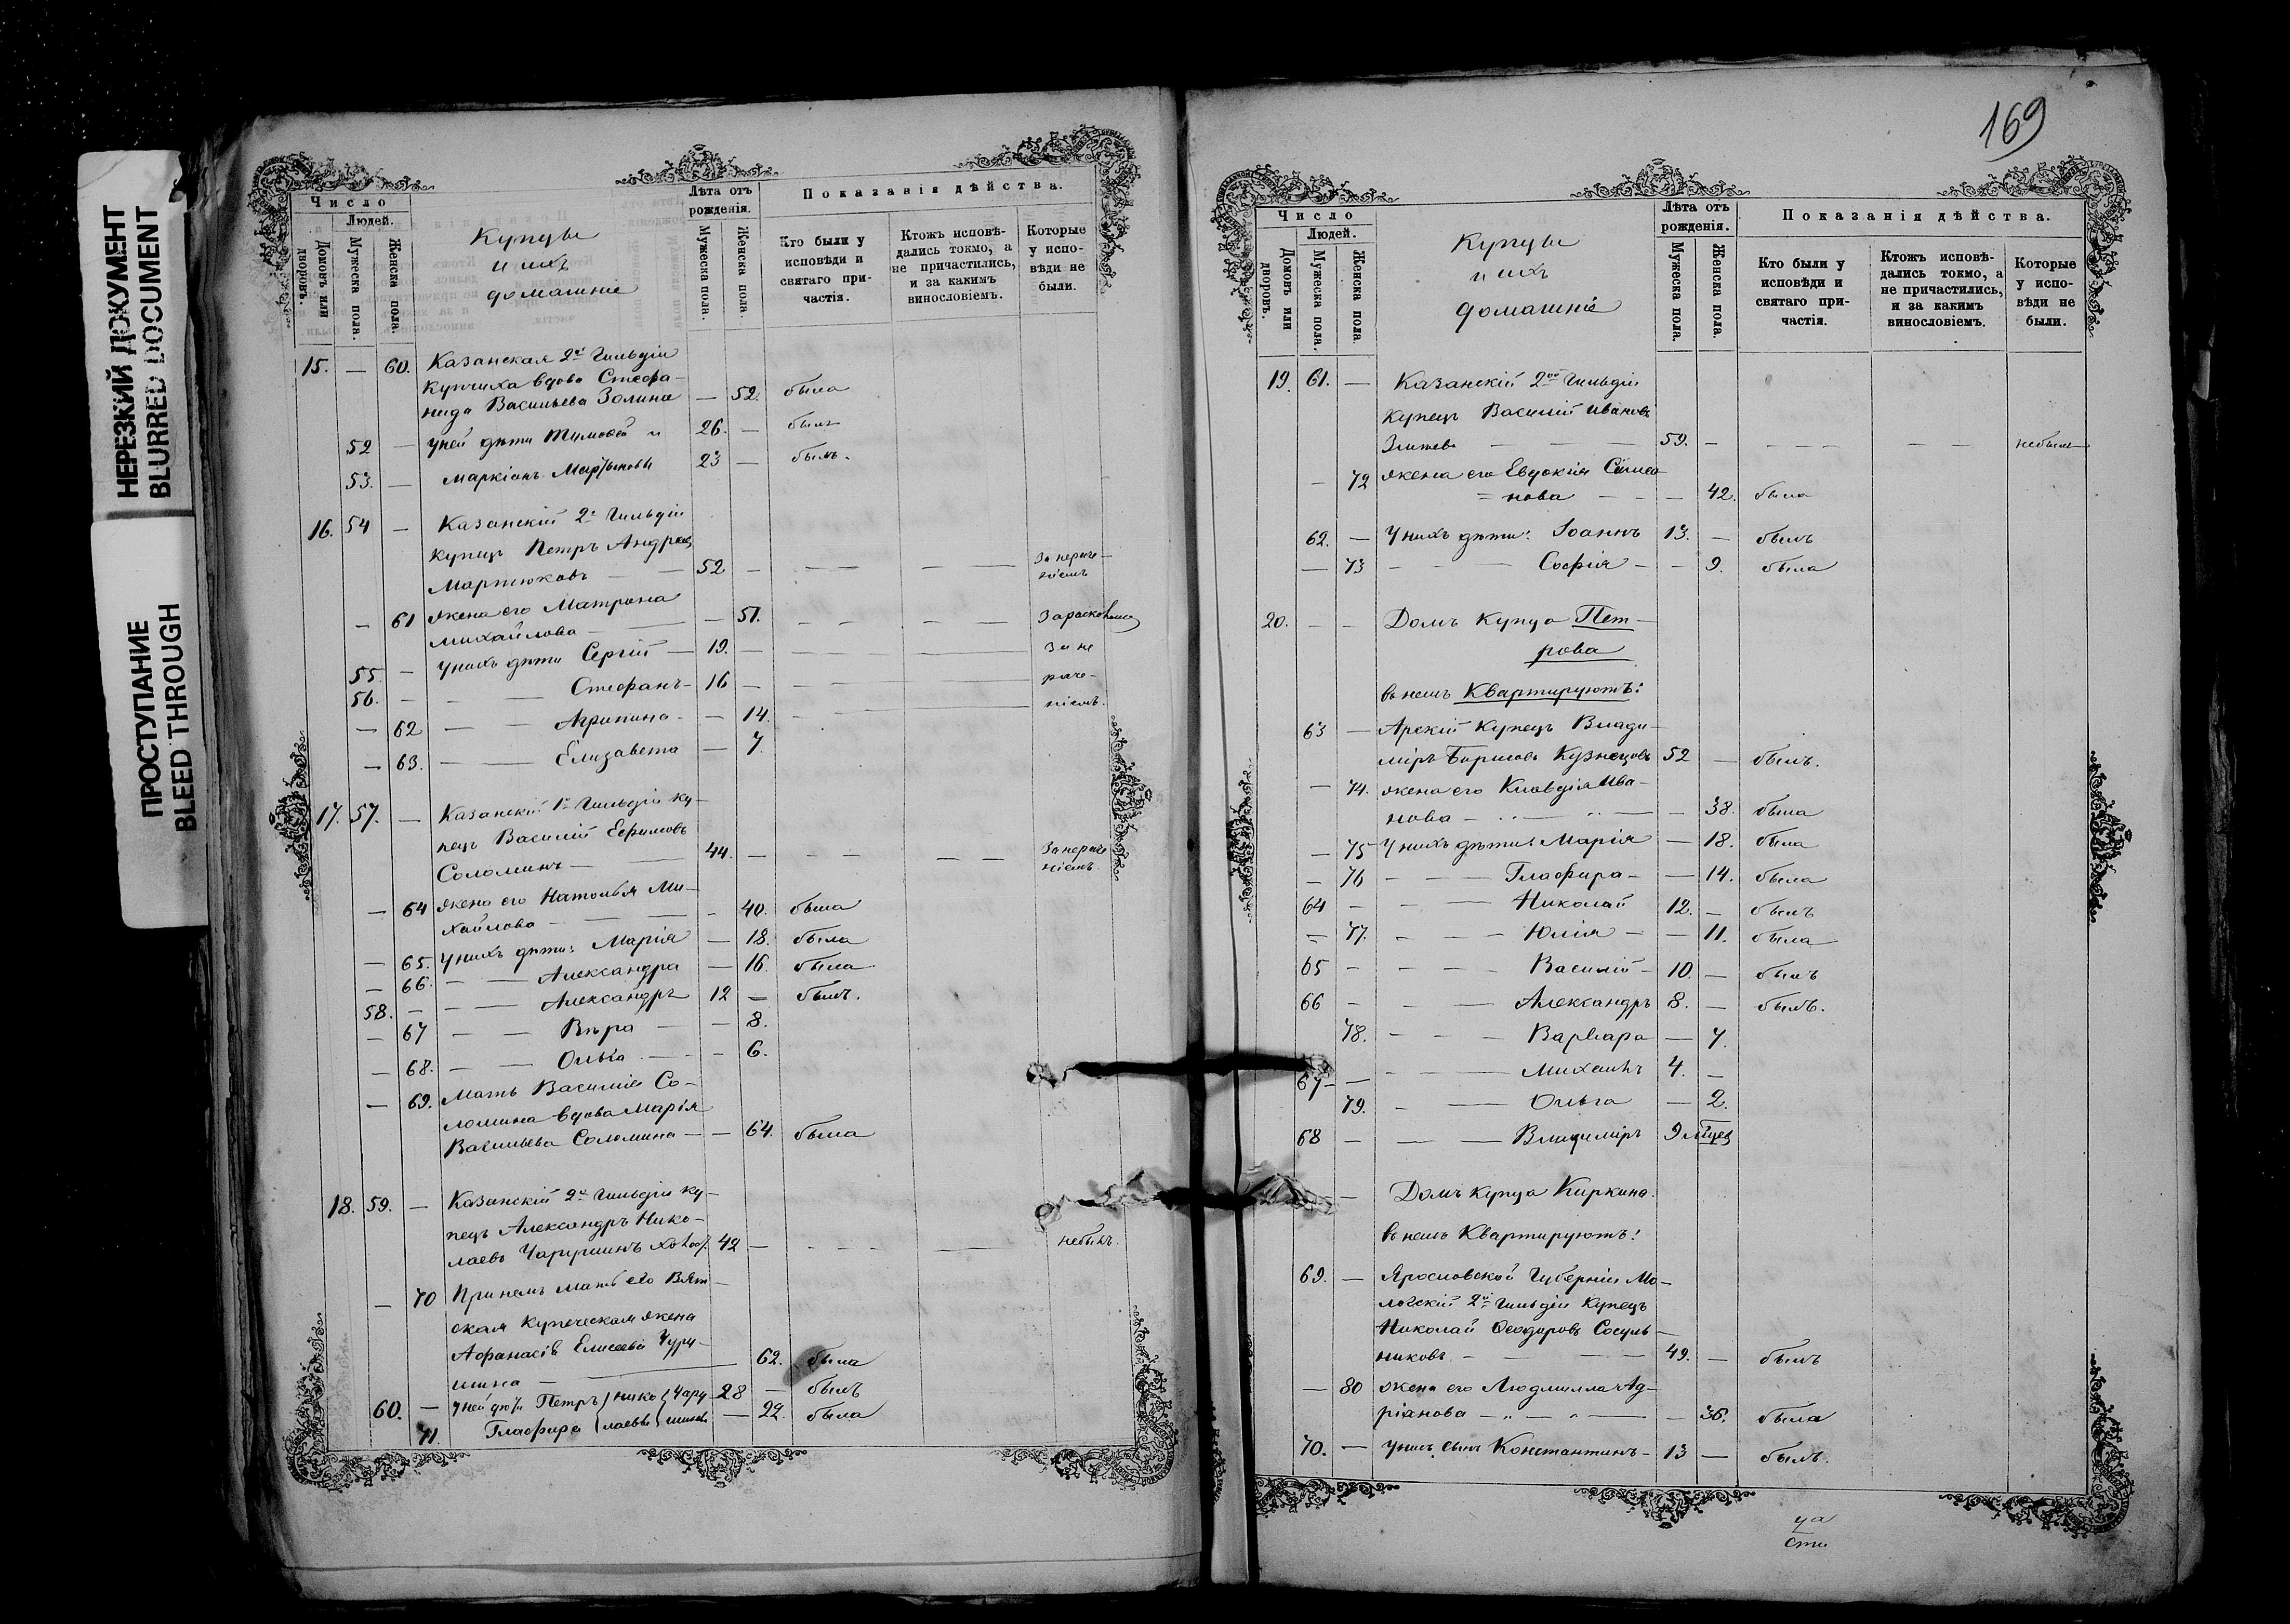 НЕРЕЗКИЙ ДОКУМЕНТ
BLURRED DOCUMENT
ПРОСТУПАНИЕ
BLEED THROUGH
Число
Людей.
Домовъ или дворовъ.
Мужеска пола.
Женска пола.
Купцы
и ихъ
домашніе
Лѣта отъ рожденія.
Мужеска пола.
Женска пола.
Показанія дѣйства.
Кто были у исповѣди и святаго причастія.
Ктожъ исповѣдались токмо, а не причастились, и за какимъ винословіемъ.
Которые у исповѣди не были.
15. — 60. Казанская 2й Гильдіи
купчиха вдова Стефа-
нида Васильева Золина — 52. была
52 — У ней дѣти Тимофей и 26. — былъ
53. — Маркіанъ Мартыновы 23 — былъ.
16. 54 — Казанскій 2й Гильдіи
купецъ Петръ Андреевъ
Мартюковъ — — 52 — — — — — За нераче-
ніемъ
— 61 жена его Матрона
Михайлова — — — 51. — — — —
55. — У нихъ дѣти Сергій — 19. — — — За не
56. — — — Стефанъ — 16 — — — раче-
— 62 — — Агрипина — — 14. — — ніемъ.
— 63. — — Елизавета — 7.
17. 57. — Казанскій 1й Гильдіи ку-
пецъ Василій Ефимовъ
Соломинъ — 44. — — — — — За нераче
ніемъ.
— 64 жена его Наталья Ми-
хайлова — — — — 40. была
— 65. У нихъ дѣти: Марія — 18. была
— 66. — — Александра — 16. была
58. — — — Александръ 12 — былъ.
— 67 — — Вѣра — — 8.
— 68. — — Ольга — — 6.
— 69. Мать Василія Со-
ломина вдова Марія
Васильева Соломина — — 64. была
18. 59. — Казанскій 2й Гильдіи ку-
пецъ Александръ Нико-
лаевъ Чарушинъ холос. 42 — — — — небылъ.
— 70 При немъ мать его Вят-
ская купеческая жена
Афанасія Елисеева Чару-
шина — — 62. была
60. — У ней дѣти Петръ Нико Чару 28 — былъ
71 Глафира лаевы шины — 22. была
169
Число
Людей.
Домовъ или дворовъ.
Мужеска пола.
Женска пола.
Купцы
и ихъ
домашніе
Лѣта отъ рожденія.
Мужеска пола.
Женска пола.
Показанія дѣйства.
Кто были у исповѣди и святаго причастія.
Ктожъ исповѣдались токмо, а не причастились, и за какимъ винословіемъ.
Которые у исповѣди не были.
19. 61. — Казанскій 2ой Гильдіи
купецъ Василій Ивановъ
— — — 59. — — — — — — небылъ
— 72 жена его Евдокія Симео
= нова — — — 42. была
62. — У нихъ дѣти: Іоаннъ 13. — былъ
— 73 — — — Софія — — 9. была
20. — — Домъ купца Пет-
рова
въ немъ Квартируютъ:
63 — Арскій купецъ Влади-
міръ Борисовъ Кузнецовъ 52 — былъ.
— 74. жена его Клавдія Ива-
нова — — — — 38. была
— 75 У нихъ дѣти: Марія — 18. была
— 76 — — — Глафира — — 14. была
64 — — — Николай 12. — былъ
— 77. — — — Юлія — — 11. была
65 — — — — Василій — 10. — былъ
66 — — — Александръ 8. — былъ.
78. — — — Варвара — 7.
67 — — — — Михаилъ 4. —
79. — — Ольга — 2.
68 — — — Владиміръ 9 мѣсяц
— Домъ купца Киркина.
въ немъ Квартируютъ:
69. — Ярославской Губерніи Мо-
логскій 2й Гильдіи купецъ
Николай Ѳеодоровъ Сосуль-
никовъ — — — 49. — былъ
— 80 жена его Людмилла Ад-
ріанова — — — — 36. была
70. — У нихъ сынъ Константинъ — 13 — былъ.